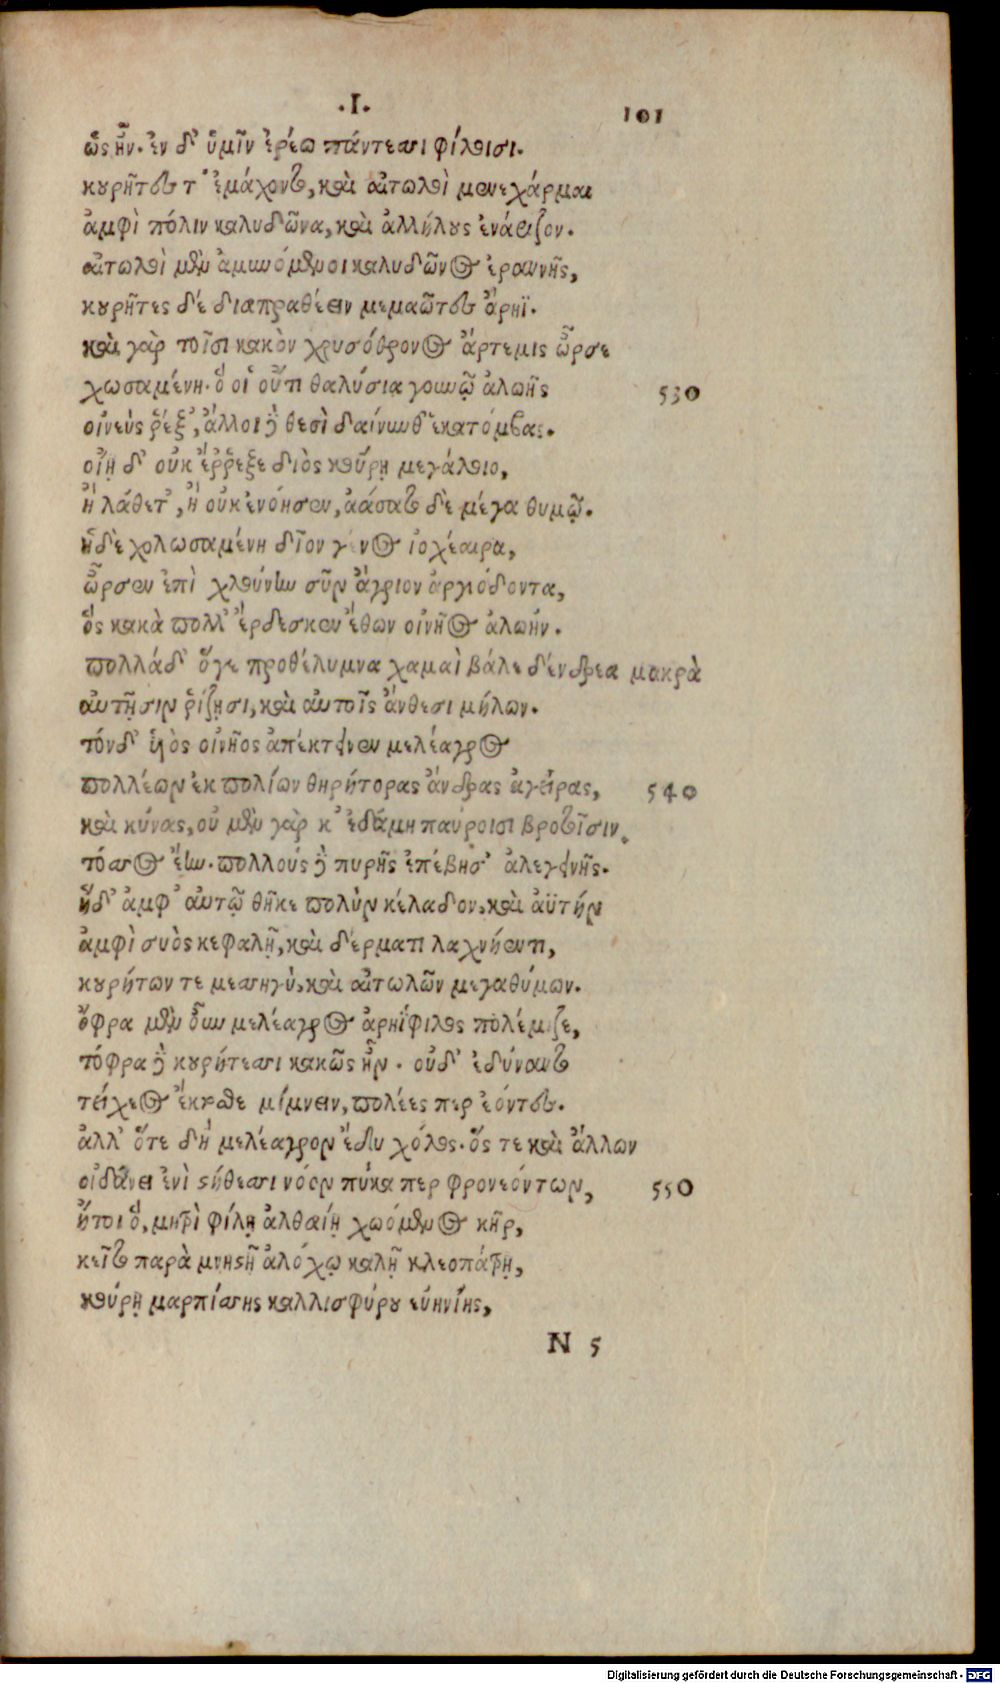 ·Ι· 101
ὣς ἦν. ἐν δ' ὑμῖν ἐρέω πάντεσσι φίλοισι.
κουρῆτες τ' ἐμάχοντο, καὶ αἰτωλοὶ μενεχάρμαι
ἀμφὶ πόλιν καλυδῶνα, καὶ ἀλλήλους ἐνάριζον.
αἰτωλοὶ μὲν ἀμυνόμενοι καλυδῶνος ἐραννῆς,
κουρῆτες δέ διαπραθέειν μεμαῶτες ἄρηϊ.
καὶ γὰρ τοῖσι κακὸν χρυσόθρονος ἄρτεμις ὦρσε
χωσαμένη. ὅ οἱ οὔτι θαλύσια γουνῷ ἀλωῆς 530
οἰνεὺς ῥέξ', ἄλλοι δὲ θεοὶ δαίνυνθ' ἑκατόμβας.
οἴῃ δ' οὐκ ἔρρεξε διὸς κούρῃ μεγάλοιο,
ἢ λάθετ', ἢ οὐκ ἐνόησεν, ἀάσατο δὲ μέγα θυμῷ.
ἡ δὲ χολωσαμένη δῖον γένος ἰοχέαιρα,
ὦρσεν ἐπὶ χλούνην σῦν ἄγριον ἀργιόδοντα,
ὃς κακὰ πολλ' ἔρδεσκεν ἔθων οἰνῆος ἀλωήν.
πολλάδ' ὅγε προθέλυμνα χαμαὶ βάλε δένδρεα μακρὰ
αὐτῇσιν ῥίζῃσι, καὶ αὐτοῖς ἄνθεσι μήλων.
τόνδ' υἱὸς οἰνῆος ἀπέκτεινεν μελέαγρος
πολλέων ἐκ πολίων θηρήτορας ἄνδρας ἀγείρας, 540
καὶ κύνας, οὐ μὲν γάρ κ' ἐδάμη παύροισι βροτοῖσιν.
τόσσος ἔην. πολλοὺς δὲ πυρῆς ἐπέβησ' ἀλεγεινῆς.
ἡδ' ἀμφ' αὐτῷ θῆκε πολὺν κέλαδον, καὶ ἀϋτὴν
ἀμφὶ συὸς κεφαλῇ, καὶ δέρματι λαχνήεντι,
κουρήτων τε μεσσηγὺ, καὶ αἰτωλῶν μεγαθύμων.
ὄφρα μὲν οὖν μελέαγρος ἀρηΐφιλος πολέμιζε,
τόφρα δὲ κουρήτεσσι κακῶς ἦν. οὐδ' ἐδύναντο
τείχεος ἔκτοθε μίμνειν, πολέες περ ἐόντες.
ἀλλ' ὅτε δὴ μελέαγρον ἔδυ χόλος. ὅς τε καὶ ἄλλων
οἰδάνει ἐνὶ στήθεσσι νόον πύκα περ φρονεόντων, 550
ἤτοι ὁ, μητρὶ φίλῃ ἀλθαίῃ χωόμενος κῆρ,
κεῖτο παρὰ μνηστῇ ἀλόχῳ καλῇ κλεοπάτρῃ,
κούρῃ μαρπίσσης καλλισφύρου εὐηνίνης,
N 5
Digitalisierung gefördert durch die Deutsche Forschungsgemeinschaft - DFG